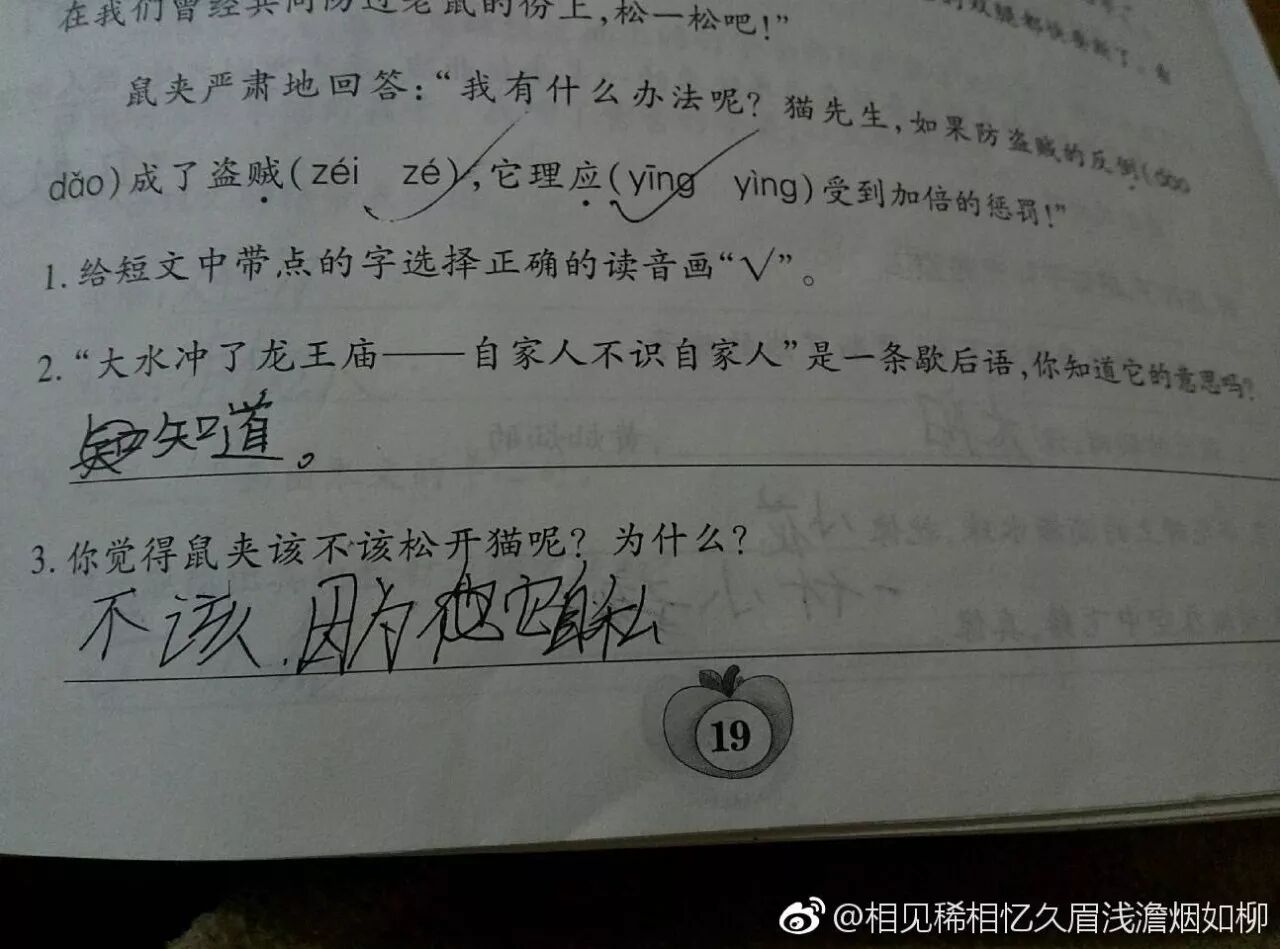 在我们曾经共同防过老鼠的份上,松一松吧!”
鼠夹严肃地回答:“我有什么办法呢?猫先生,如果防盗贼的反倒(
dǎo)成了盗贼(zéi zé),它理应(yīng yìng)受到加倍的惩罚!”
1.给短文中带点的字选择正确的读音画“√”。
2.“大水冲了龙王庙——自家人不识自家人”是一条歇后语,你知道它的意思吗?
知道。
3.你觉得鼠夹该不该松开猫呢?为什么?
不该,因为它自私
19
@相见稀相忆久眉浅澹烟如柳